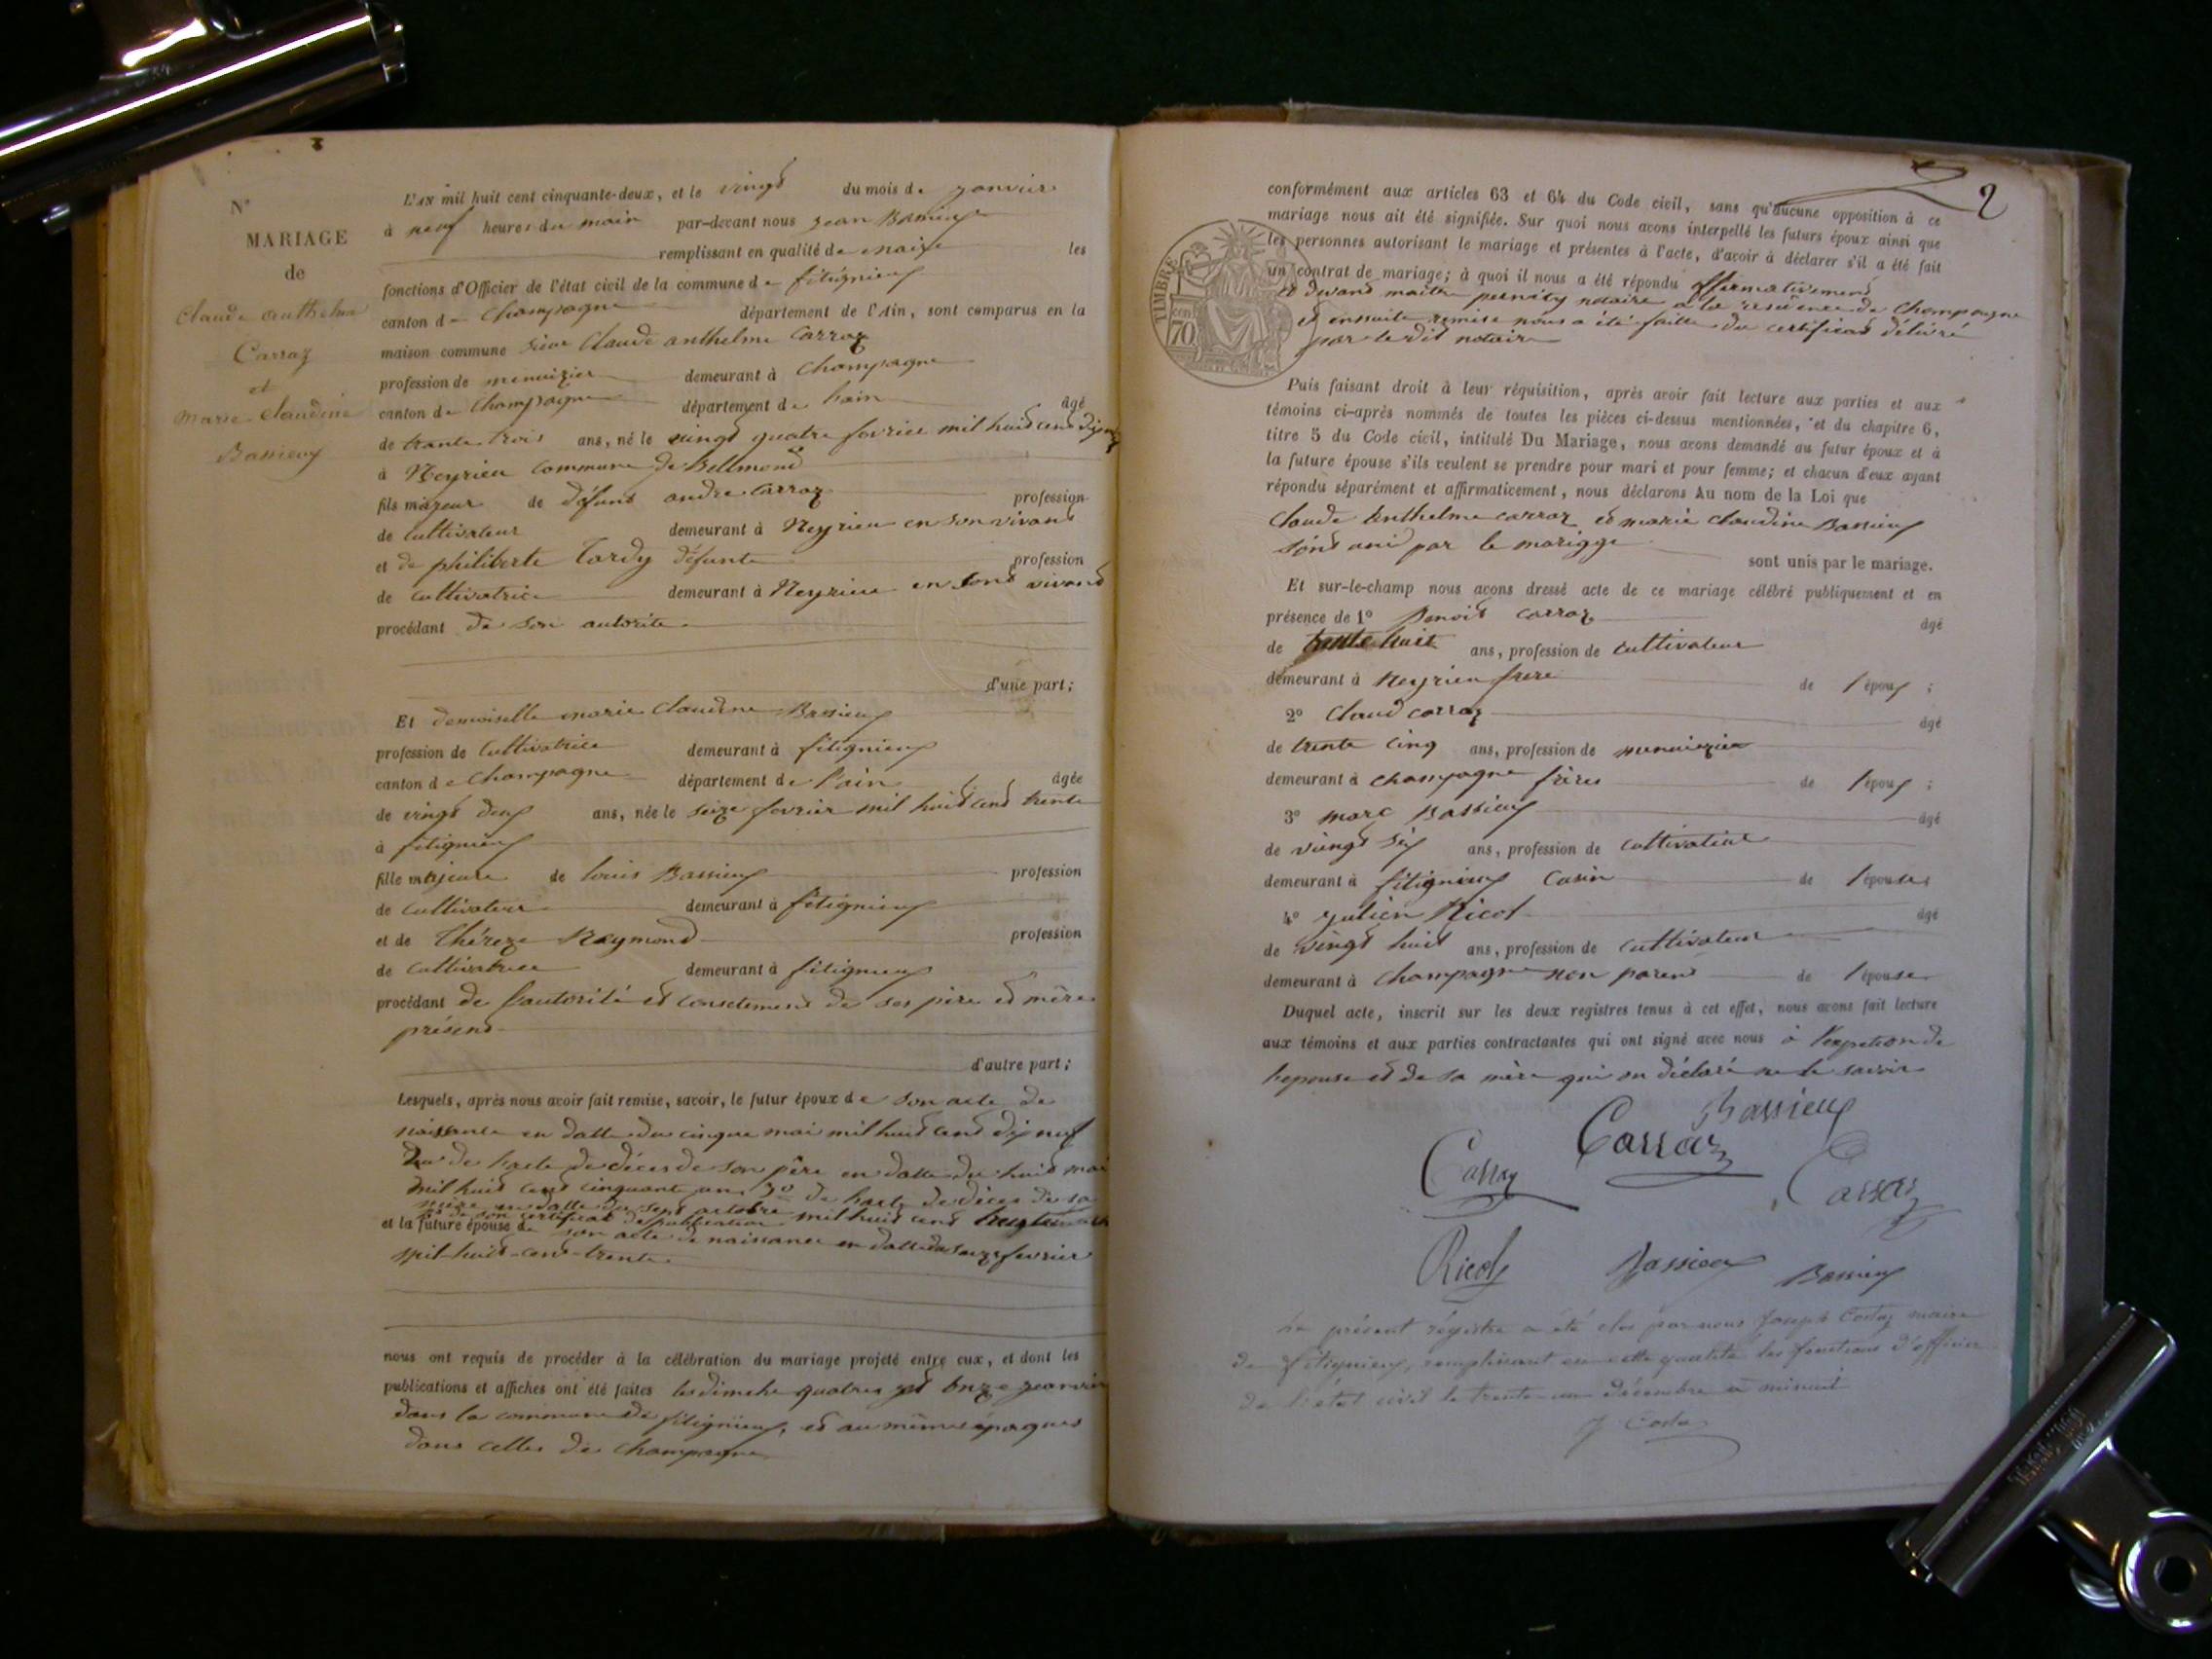 N°
MARIAGE
de
Claude anthelme
Carraz
et
Marie Claudine
Bassieux
L'AN mil huit cent cinquante-deux, et le vingt du mois de janvier
à neuf heures du matin par-devant nous jean Bassieux
remplissant en qualité de maire les
fonctions d'Officier de l'état civil de la commune de fitignieux
canton de Champagne département de l'Ain, sont comparus en la
maison commune sieur Claude anthelme Carraz
profession de menuizier demeurant à Champagne
canton de Champagne département de l'ain âgé
de trante trois ans, né le vingt quatre favrier mil huit cent dix
à Neyrieu commune de Bellmond
fils majeur de défunt andre Carraz profession
de cultivateur demeurant à Neyrieu en son vivant
et de philiberte Tardy défunte profession
de cultivatrice demeurant à Neyrieu en sont vivant
procédant de son autorite
d'une part;
Et demoiselle marie Claudine Bassieux
profession de Cultivatrice demeurant à fitignieux
canton de Champagne département de l'ain âgée
de vingt deux ans, née le seize favrier mil huit cent trente
à fitignieux
fille majeure de louis Bassieux profession
de cultivateur demeurant à fitignieux
et de Théreze Raymond profession
de cultivatrice demeurant à fitignieux
procédant de l'autorité et consetement de ses père et mère
présent
d'autre part;
Lesquels, après nous avoir fait remise, savoir, le futur époux de son acte de
naissance en datte du cinque mai mil huit cent dix neuf
de l'acte de déces de son père en datte du huit mai
mil huit cent cinquante un 3° de l'acte de déces de sa
mère en datte du sept octobre mil huit cent
de son certificat de publication
et la future épouse de son acte de naissance en datte du seize fevrier
mil-huit-cent-trente
nous ont requis de procéder à la célébration du mariage projeté entre eux, et dont les
publications et affiches ont été faites les dimche quatres et onze janvier
dans la commune de fitignieux, et au mêmes époques
dans celles de Champagne
2
TIMBRE
70
conformément aux articles 63 et 64 du Code civil, sans qu'aucune opposition à ce
mariage nous ait été signifiée. Sur quoi nous avons interpellé les futurs époux ainsi que
les personnes autorisant le mariage et présentes à l'acte, d'avoir à déclarer s'il a été fait
un contrat de mariage; à quoi il nous a été répondu affirmativement
et devant maître notaire a la residence de Champagne
et ensuite remise nous a été faitte du certificat délivré
par le dit notaire
Puis faisant droit à leur réquisition, après avoir fait lecture aux parties et aux
témoins ci-après nommés de toutes les pièces ci-dessus mentionnées, et du chapitre 6,
titre 5 du Code civil, intitulé Du Mariage, nous avons demandé au futur époux et à
la future épouse s'ils veulent se prendre pour mari et pour femme; et chacun d'eux ayant
répondu séparément et affirmativement, nous déclarons Au nom de la Loi que
Claude Anthelme carraz et marie claudine Bassieux
sont uni par le marigge
sont unis par le mariage.
Et sur-le-champ nous avons dressé acte de ce mariage célébré publiquement et en
présence de 1° Benoit carraz âgé
de trente huit ans, profession de cultivateur
demeurant à Neyrieu frere de l'époux;
2° Claud carraz âgé
de trente cinq ans, profession de menuizier
demeurant à champagne frères de l'époux;
3° marc Bassieux âgé
de vingt six ans, profession de cultivateur
demeurant à fitignieux cosin de l'épouse
4° julien Ricot âgé
de vingt huit ans, profession de cultivateur
demeurant à champagne non parent de l'épouse
Duquel acte, inscrit sur les deux registres tenus à cet effet, nous avons fait lecture
aux témoins et aux parties contractantes qui ont signé avec nous à l'exption de
l'epouse et de sa mère qui on déclaré ne le savoir
Bassieux
Carraz
Carraz
Carraz
Ricot
Bassieux
Bassieux
Le présent régistre a été clos par nous Joseph Costaz maire
de fitignieux, remplissant en cette qualité les fonctions d'officier
de l'état civil le trente-un décembre à minuit
J Costaz